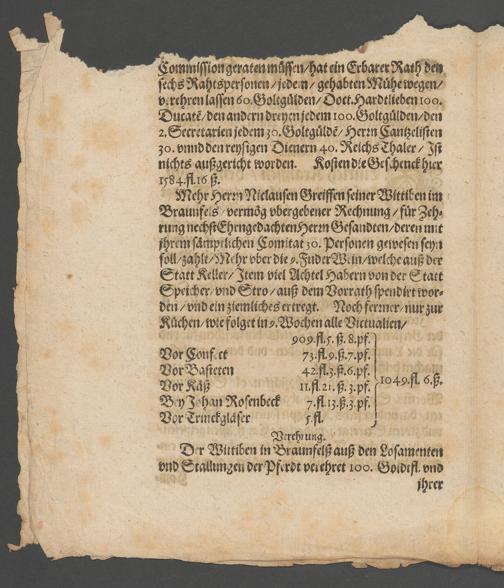 Commission geraten müssen/hat ein Erbarer Rath den
sechs Rahtspersonen/jedem/ gehabten Mühe wegen/
verehren lassen 60. Goltgülden/Doct. Hardtlieben 100.
Ducatē/den andern dreyen jedem 100. Goltgülden/den
2. Secretarien jedem 30. Goltgüldē/ Herrn Cantzelisten
30. vnnd den reysigen Dienern 40. Reichs Thaler/ Ist
nichts außgericht worden. Kosten die Geschenck hier
1584.fl.16 ß.
Mehr Herrn Nielausen Greiffen seiner Wittiben im
Braunfels/ vermög vbergebener Rechnung/ für Zeh-
rung nechst Ehrngedachten Herrn Gesandten/deren mit
ihrem sämptlichen Comitat 30. Personen gewesen seyn
soll/zahlt/Mehr vber die 9. Fuder Wein/welche auß der
Statt Keller/ Item viel Achtel Habern von der Statt
Speicher/ vnd Stro/ auß dem Vorrath spendirt wor-
den/ vnd ein ziemliches ertregt. Noch ferner/nur zur
Küchen/ wie folget in 9. Wochen alle Victualien/
909.fl.5.ß.8.pf.
Vor Confect 73.fl.9.ß.7.pf.
Vor Pasteten 42.fl.3.ß.6.pf.
Vor Käß 11.fl.21.ß.3.pf. 1049.fl.6.ß.
Bey Johan Rosenbeck 7.fl.13.ß.3.pf.
Vor Trinckgläser 5.fl.
Verehrung.
Der Wittiben in Braunfelß auß den Losamenten
vnd Stallungen der Pferdt verehret 100. Goldtfl. vnd
ihrer